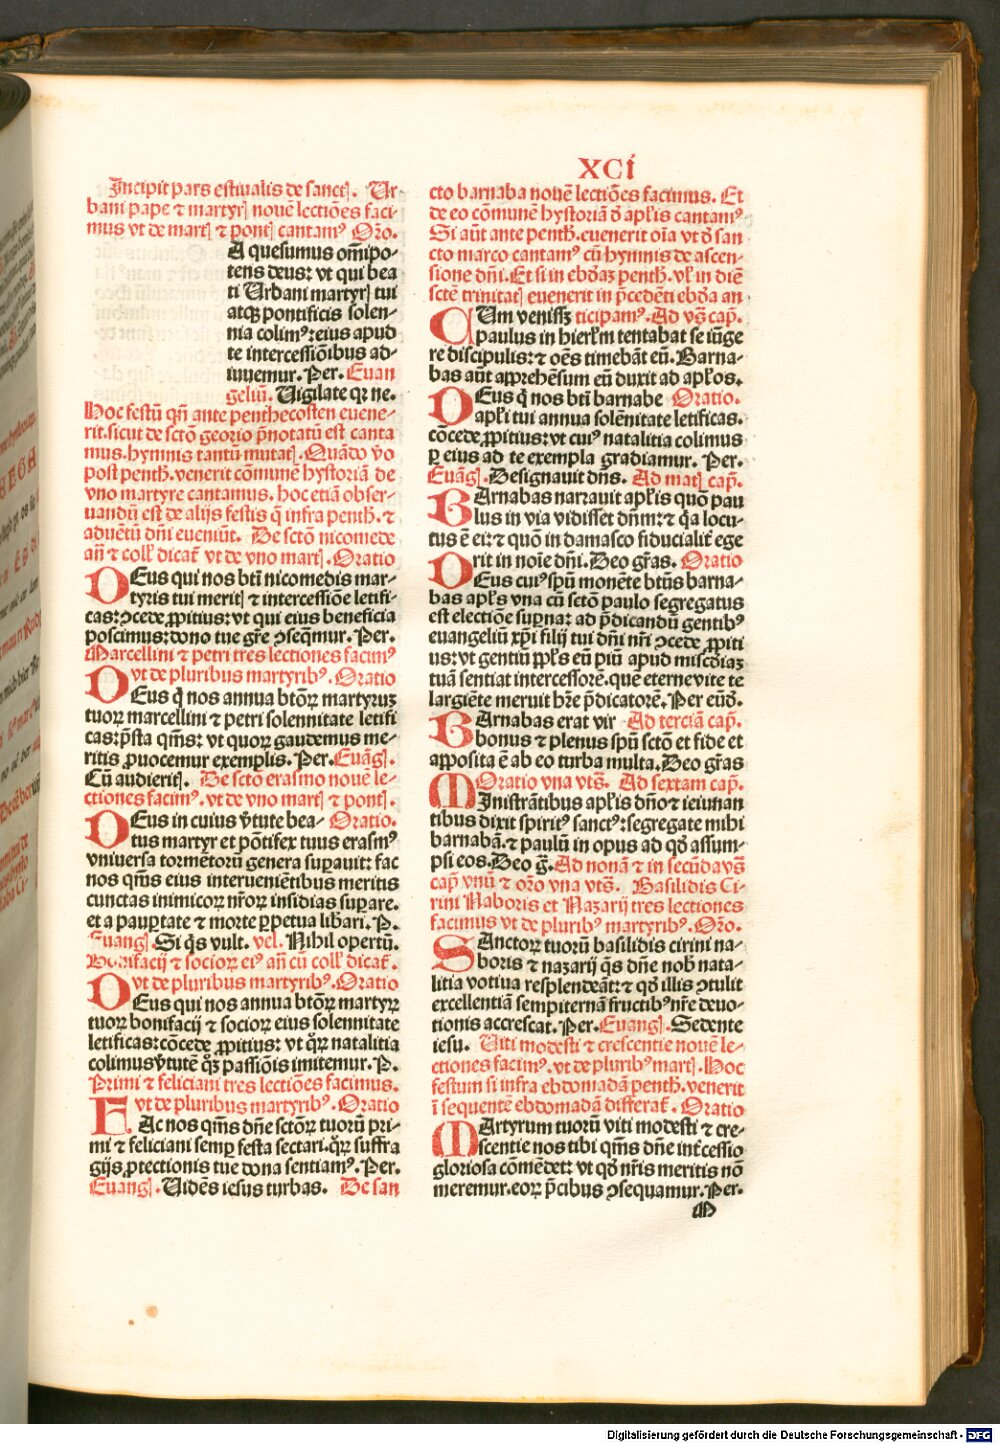 XCI
Incipit pars estiualis de sanctꝭ. Ur-
bani pape ⁊ martyrꝭ nouē lectiōes faci-
mus vt de martꝭ ⁊ pontꝭ cantamꝰ Oro.
A quesumus om̄ipo-
tens deus: vt qui bea
ti Urbani martyrꝭ tui
atqꝫ pontificis solen-
nia colimꝰ: eius apud
te intercessiōibus ad-
iuuemur. Per. Euan
geliū. Uigilate qꝛ ne.
Hoc festū qn̄ ante penthecosten euene-
rit. sicut de sctō georio p̄notatū est canta
mus. hymnis tantū mutatꝭ. Quādo v̄o
post penth. venerit cōmunē hystoriā de
vno martyre cantamus. hoc etiā obser-
uandū est de alijs festis q̄ infra penth. ⁊
aduētū dn̄i eueniūt. De sctō nicomede
an̄ ⁊ coll' dicat̄ vt de vno martꝭ. Oratio
DEus qui nos bt̄i nicomedis mar-
tyris tui meritꝭ ⁊ intercessiōe letifi-
cas: ꝯcede ꝓpitius: vt qui eius beneficia
poscimus: dono tue gr̄e ꝯseq̄mur. Per.
Marcellini ⁊ petri tres lectiones facimꝰ
vt de pluribus martyribꝰ. Oratio
DEus q̄ nos annua bt̄oꝝ martyruꝫ
tuoꝝ marcellini ⁊ petri solennitate letifi
cas: p̄sta qm̄s: vt quoꝝ gaudemus me-
ritis ꝓuocemur exemplis. Per. Euāgꝭ.
Cū audieritꝭ. De sctō erasmo nouē le-
ctiones facimꝰ. vt de vno martꝭ ⁊ pontꝭ.
DEus in cuius v̄tute bea- Oratio.
tus martyr et pōtifex tuus erasmꝰ
vniuersa tormētorū genera suꝑauit: fac
nos qm̄s eius interuenietibus meritis
cunctas inimicoꝝ nr̄oꝝ insidias suꝑare.
et a pauꝑtate ⁊ morte ꝑpetua lib̄ari. P.
Euangꝭ. Si q̄s vult. vel. Nihil opertū.
Bonifacij ⁊ socioꝝ eiꝰ an̄ cū coll' dicat̄.
vt de pluribus martyribꝰ. Oratio
DEus qui nos annua bt̄oꝝ martyꝝ
tuoꝝ bonifacij ⁊ socioꝝ eius solennitate
letificas: cōcede ꝓpitius: vt q̄ꝝ natalitia
colimus v̄tutē qͦꝫ passiōis imitemur. P.
Primi ⁊ feliciani tres lectiōes facimus.
vt de pluribus martyribꝰ. Oratio
FAc nos qm̄s dn̄e sctōꝝ tuorū pri-
mi ⁊ feliciani semꝑ festa sectari. q̄ꝝ suffra
gijs ꝓtectionis tue dona sentiamꝰ. Per.
Euangꝭ. Uidēs iesus turbas. De san
cto barnaba nouē lectiōes facimus. Et
de eo cōmunē hystoriā ð apl'is cantamꝰ
Si aūt ante penth. euenerit oīa vt ð san
cto marco cantamꝰ cū hymnis de ascen-
sione dn̄i. Et si in ebd̄aꝫ penth. vl' in diē
sctē trinitatꝭ euenerit in p̄cedēti ebd̄a an
CUm venissꝫ ticipamꝰ. Ad vꝭ̄ cap̄.
paulus in hierl'm tentabat se iūge
re discipulis: ⁊ oēs timebāt eū. Barna-
bas aūt apprehēsum eū duxit ad apl'os.
DEus q̄ nos bt̄i barnabe Oratio.
apl'i tui annua solēnitate letificas.
cōcede ꝓpitius: vt cuiꝰ natalitia colimus
ꝑ eius ad te exempla gradiamur. Per.
Euāgꝭ. Designauit dn̄s. Ad matꝭ cap̄.
BArnabas narrauit apl'is quō pau
lus in via vidisset dn̄m: ⁊ q̄a locu-
tus ē ei: ⁊ quō in damasco fiducialiť ege
rit in noīe dn̄i. Deo gr̄as. Oratio
DEus cuiꝰ spū monēte bt̄us barna-
bas apl's vna cū sctō paulo segregatus
est electiōe suꝑna: ad p̄dicandū gentibꝰ
euangeliū xp̄i filij tui dn̄i nr̄i ꝯcede ꝓpiti
us: vt gentiū ppl's eū piū apud misc̄diaꝫ
tuā sentiat intercessorē. quē eterne vite te
largiēte meruit hr̄e p̄dicatorē. Per eūd̄.
BArnabas erat vir Ad terciā cap̄.
bonus ⁊ plenus spū sctō et fide et
apposita ē ab eo turba multa. Deo gr̄as
Oratio vna vtꝭ̄. Ad sextam cap̄.
MInistrātibus apl'is dn̄o ⁊ ieiunan
tibus dixit spiritꝰ sanctꝰ: segregate mihi
barnabā. ⁊ paulū in opus ad qð assum-
psi eos. Deo g̃. Ad nonā ⁊ in secūda vꝭ̄
cap̄ vnū ⁊ oro vna vtꝭ̄. Basilidis Ci-
rini Naboris et Nazarij tres lectiones
facimus vt de pluribꝰ martyribꝰ. Oro.
SAnctoꝝ tuorū basilidis cirini na-
boris ⁊ nazarij q̄s dn̄e nob̄ nata-
litia votiua resplendeāt: ⁊ qð illis ꝯtulit
excellentiā sempiternā fructibꝰ nr̄e deuo-
tionis accrescat. Per. Euangꝭ. Sedente
iesu. Uiti modesti ⁊ crescentie nouē le-
ctiones facimꝰ. vt de pluribꝰ martꝭ. Hoc
festum si infra ebdomadā penth. venerit
ī sequentē ebdomadā differat̄. Oratio
MArtyrum tuorū viti modesti ⁊ cre-
scentie nos tibi qm̄s dn̄e int̄cessio
gloriosa cōmēdet: vt qð nr̄is meritis nō
meremur. eoꝝ p̄cibus ꝯsequamur. Per.
M
Digitalisierung gefördert durch die Deutsche Forschungsgemeinschaft - DFG